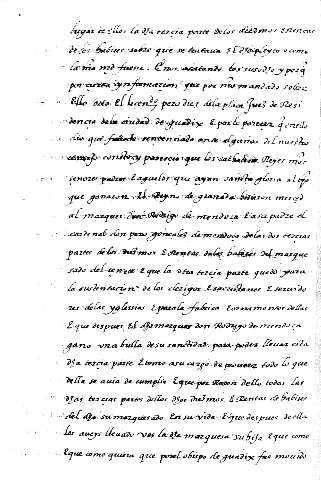 lugar te ellos la dha tercia parte de los diezmos e rentas
de los habices sobre que se trataua El dho pleyto o como
la mia md fuese. E nos acatando lo susodho y porq
por cierta ynformacion que por nro mandado sobre
Ello ovo El licençdo pero diez dela plaça Juez de Resi
dencia de la ciudad de guadix E por le parecer q en el d
cho que sentenciado ante algunos del nuestro
consejo consta y parescio que los catholicos Reyes mis
señores padres E aguelos que ayan sancta gloria al tpo
que ganaron El Reyno de granada hizieron merced
al marques don Rodrigo de mendoça E a su padre el
cardenal don pero gonçales de mendoça de las dos tercias
partes de los diezmos E Rentas de los habices del marque
sado del cenete E que la otra tercia parte quedo para
la sustentacion de los clerigos E sacristanes E servido
res de las yglesias E para la fabrica E ornamentos dellas
E que despues El dho marques don Rodrigo de mendoça
gano vna bulla de su santidad para poder llevar esta
dha tercia parte E tomo a su cargo de proveer todo lo que
della se avia de cumplir E que por Razon dello todas las
dhas tercias partes de los dhos diezmos E Rentas de habices
del dho su marquesado En su vida E que despues de ella
los aveys llevado vos la dha marquesa su hija E que como
E que como quiera que por el obispo de guadix fue movido